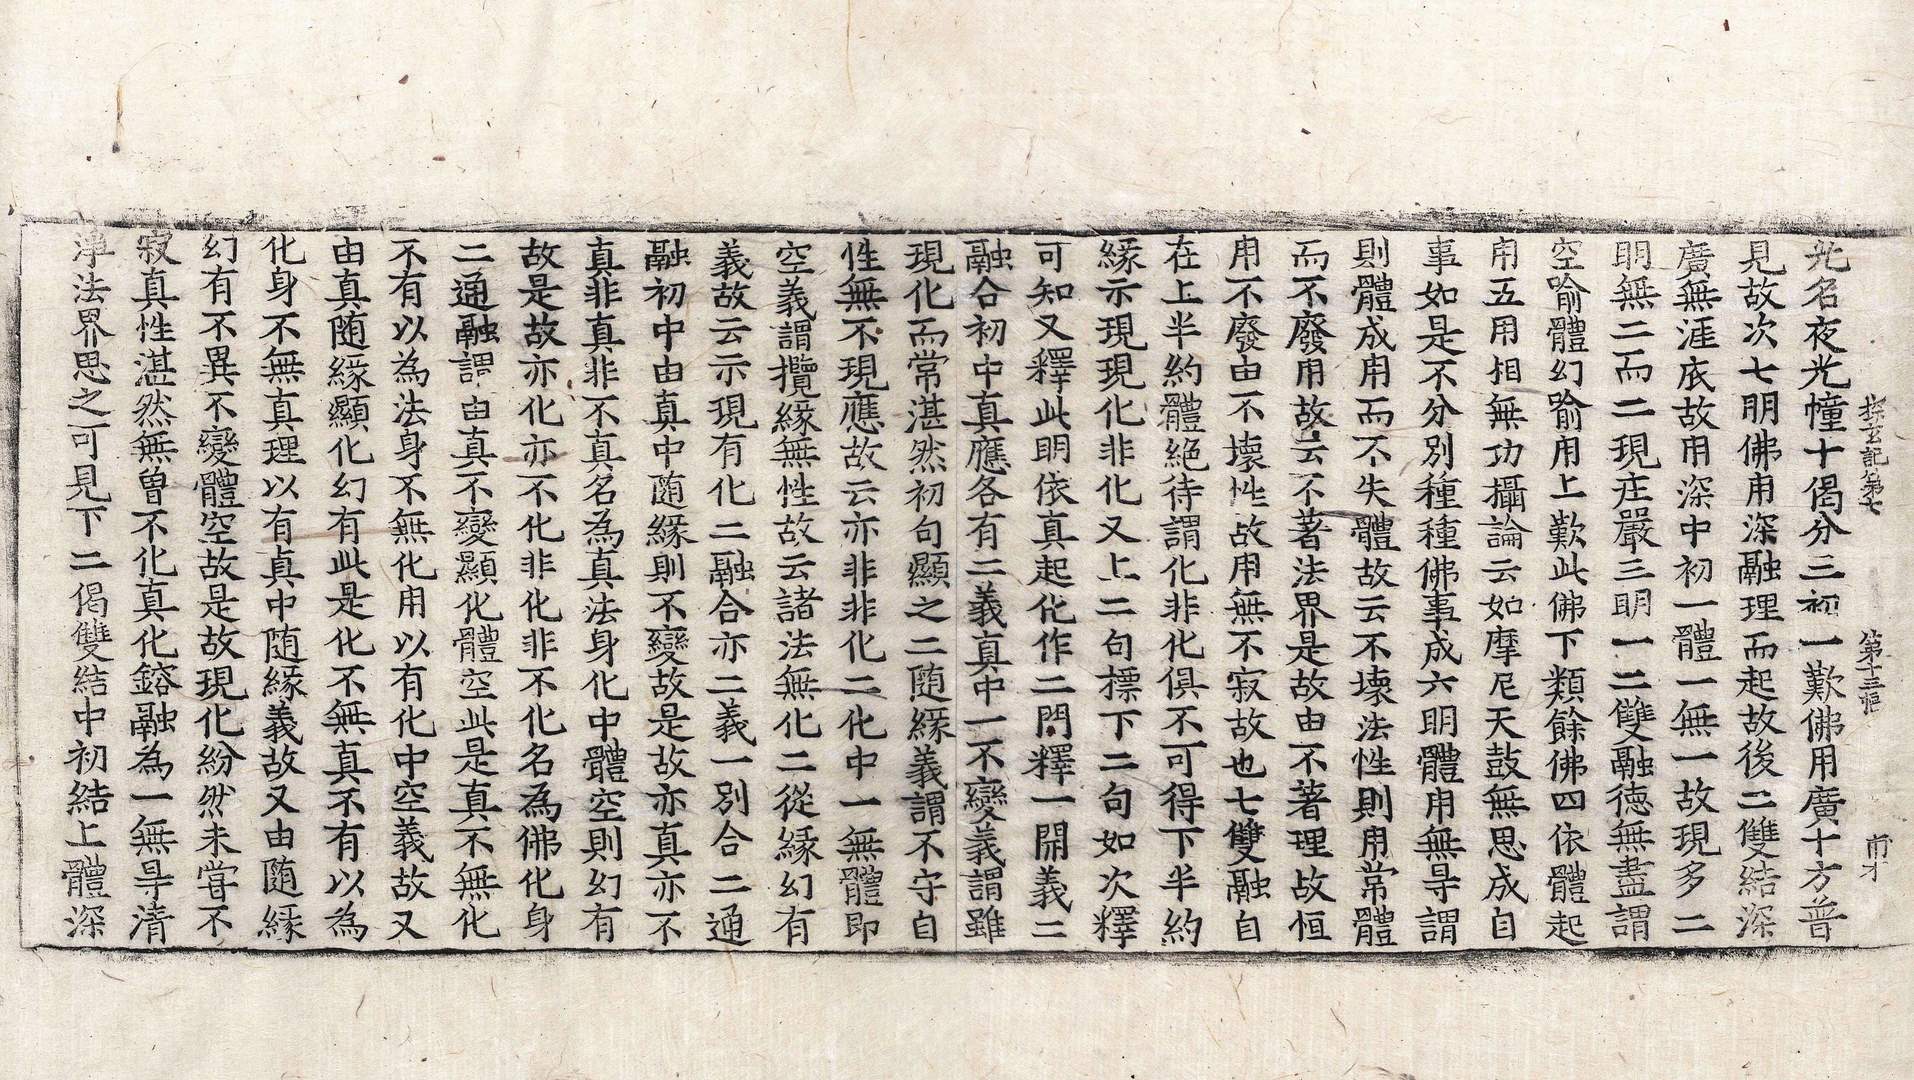 探玄記第七 第十三幅
光名夜光幢十偈分三初一歎佛用廣十方普
見故次七明佛用深融理而起故後二雙結深
廣無涯底故用深中初一體一無一故現多二
明無二而二現庄嚴三明一二雙融德無盡謂
空喻體幻喻用上歎此佛下類餘佛四依體起
用五用相無功攝論云如摩尼天鼓無思成自
事如是不分別種種佛事成六明體用無㝵謂
則體成用而不失體故云不壞法性則用常體
而不廢用故云不著法界是故由不著理故恒
用不廢由不壞性故用無不寂故也七雙融自
在上半約體絕待謂化非化俱不可得下半約
緣示現現化非化又上二句標下二句如次釋
可知又釋此明依真起化作二門釋一開義二
融合初中真應各有二義真中一不變義謂雖
現化而常湛然初句顯之二隨緣義謂不守自
性無不現應故云亦非非化二化中一無體即
空義謂攬緣無性故云諸法無化二從緣幻有
義故云示現有化二融合亦二義一別合二通
融初中由真中隨緣則不變故是故亦真亦不
真非真非不真名為真法身化中體空則幻有
故是故亦化亦不化非化非不化名為佛化身
二通融謂由真不變顯化體空此是真不無化
不有以為法身不無化用以有化中空義故又
由真隨緣顯化幻有此是化不無真不有以為
化身不無真理以有真中隨緣義故又由隨緣
幻有不異不變體空故是故現化紛然未嘗不
寂真性湛然無曾不化真化鎔融為一無㝵清
淨法界思之可見下二偈雙結中初結上體深